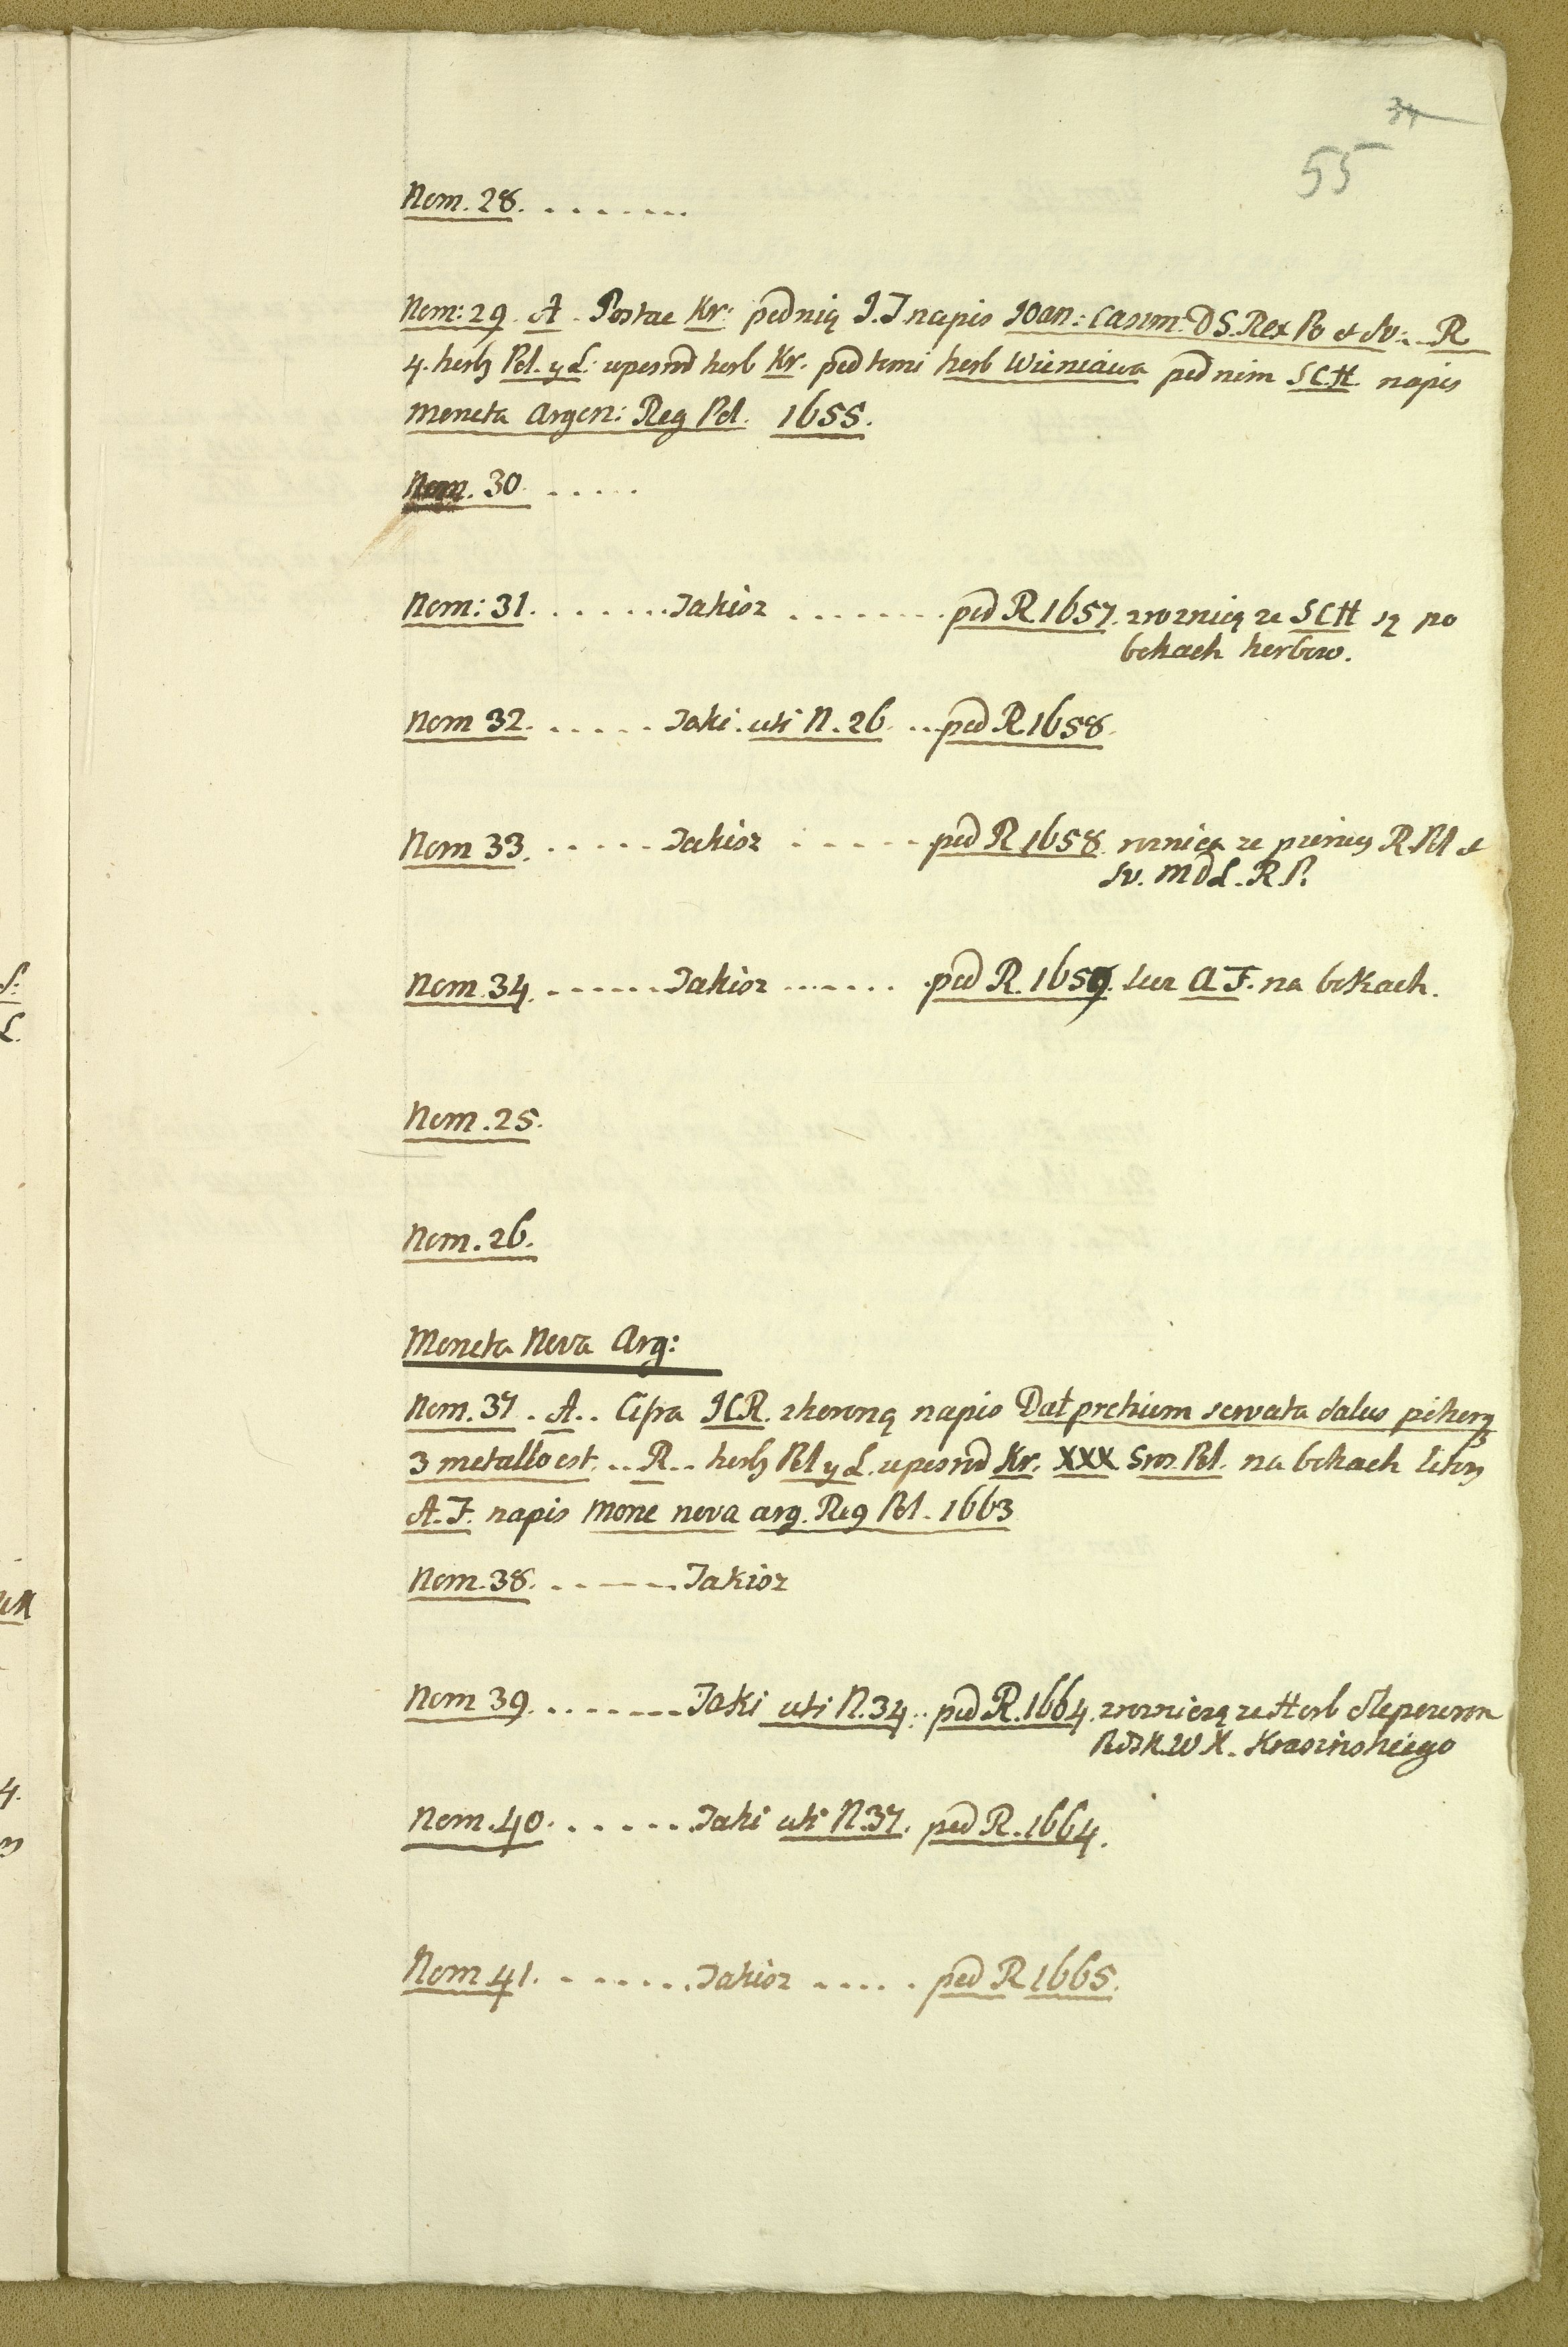 34
55
Nom. 28. . . . . . . .
Nom: 29. A. Postac Kr: pod nią I. T napis Joan: Casim: D S. Rex Po et Sv: . R
4. herb Pol. y L. uposrod herb Kr. pod temi herb Wieniawa pod nim SCH. napis
Moneta Argen: Reg Pol. 1655.
Nom. 30. . . . . .
Nom: 31. . . . . . . Takisz . . . . . . . . pod R. 1657. z roznicą ze SCH są po
bokach herbow.
Nom 32. . . . . . Taki. uti N. 26. . . pod R. 1658.
Nom 33. . . . . . Takisz . . . . . . pod R 1658. roznica ze R. Pol &
Sv. MDL. R P.
Nom. 34. . . . . . . Takisz . . . . . . . pod R. 1659. lecz A T. na bokach.
Nom. 25.
Nom. 26.
Moneta Nova Arg:
Nom. 37. A. . Cifra ICR. z koroną napis Dat pretium servata salus potiorq
3 metallo est. . . R. . herb Pol y L. uposrod Kr. XXX Pol. na bokach litery
A. T. napis Mone nova arg. Reg Pol. 1663
Nom. 38. . . . . . Takisz
Nom 39. . . . . . . . Taki uti N. 34. . pod R. 1664. z roznicą ze Herb Slepowron
X. Krasinskiego
Nom. 40. . . . . . . Taki uti N. 37. pod R. 1664.
Nom 41. . . . . . . . Takisz . . . . . pod R 1665.